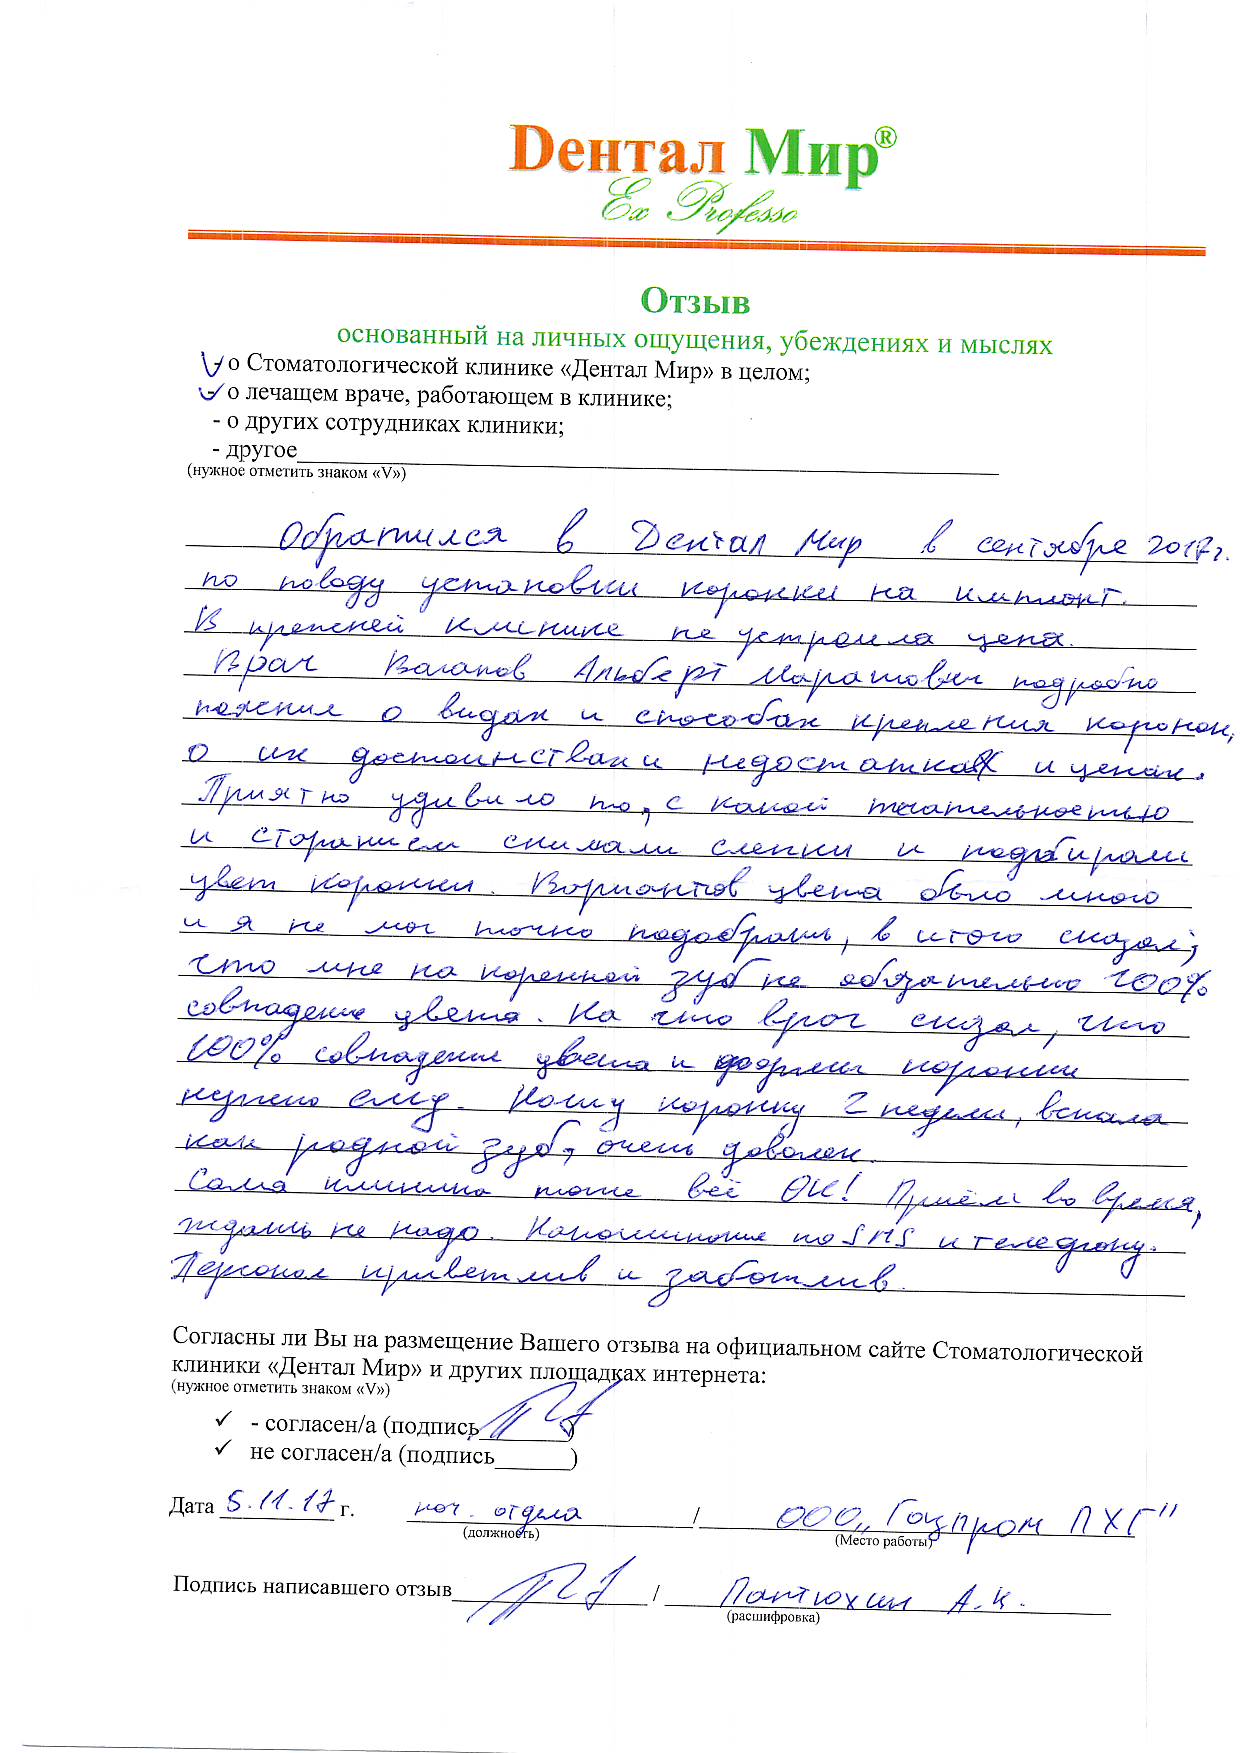 Dентал Мир®
Ex Professo
Отзыв
основанный на личных ощущения, убеждениях и мыслях
V - о Стоматологической клинике «Дентал Мир» в целом;
V - о лечащем враче, работающем в клинике;
- о других сотрудниках клиники;
- другое
(нужное отметить знаком «V»)
Обратился в Dентал Мир в сентябре 2017г.
по поводу установки коронки на имплант.
В прежней клинике не устроила цена.
Врач Вагапов Альберт Маратович подробно
пояснил о видах и способах крепления коронок,
о их достоинствах и недостатках и ценах.
Приятно удивило то, с какой тщательностью
и старанием снимали слепки и подбирали
цвет коронки. Вариантов цвета было много
и я не мог точно подобрать, в итоге сказал,
что мне на коренной зуб не обязательно 100%
совпадение цвета. На что врач сказал, что
100% совпадение цвета и формы коронки
нужно ему. Ношу коронку 2 недели, встала
как родной зуб, очень доволен.
Сама клиника тоже всё ОК! Приём во время,
ждать не надо. Напоминание по SMS и телефону.
Персонал приветлив и заботлив.
Согласны ли Вы на размещение Вашего отзыва на официальном сайте Стоматологической
клиники «Дентал Мир» и других площадках интернета:
(нужное отметить знаком «V»)
✓ - согласен/а (подпись)
✓ не согласен/а (подпись______)
Дата 5.11.17 г. нач. отдела / ООО „Газпром ПХГ"
(должность) (Место работы)
Подпись написавшего отзыв / Пантюхин А.К.
(расшифровка)